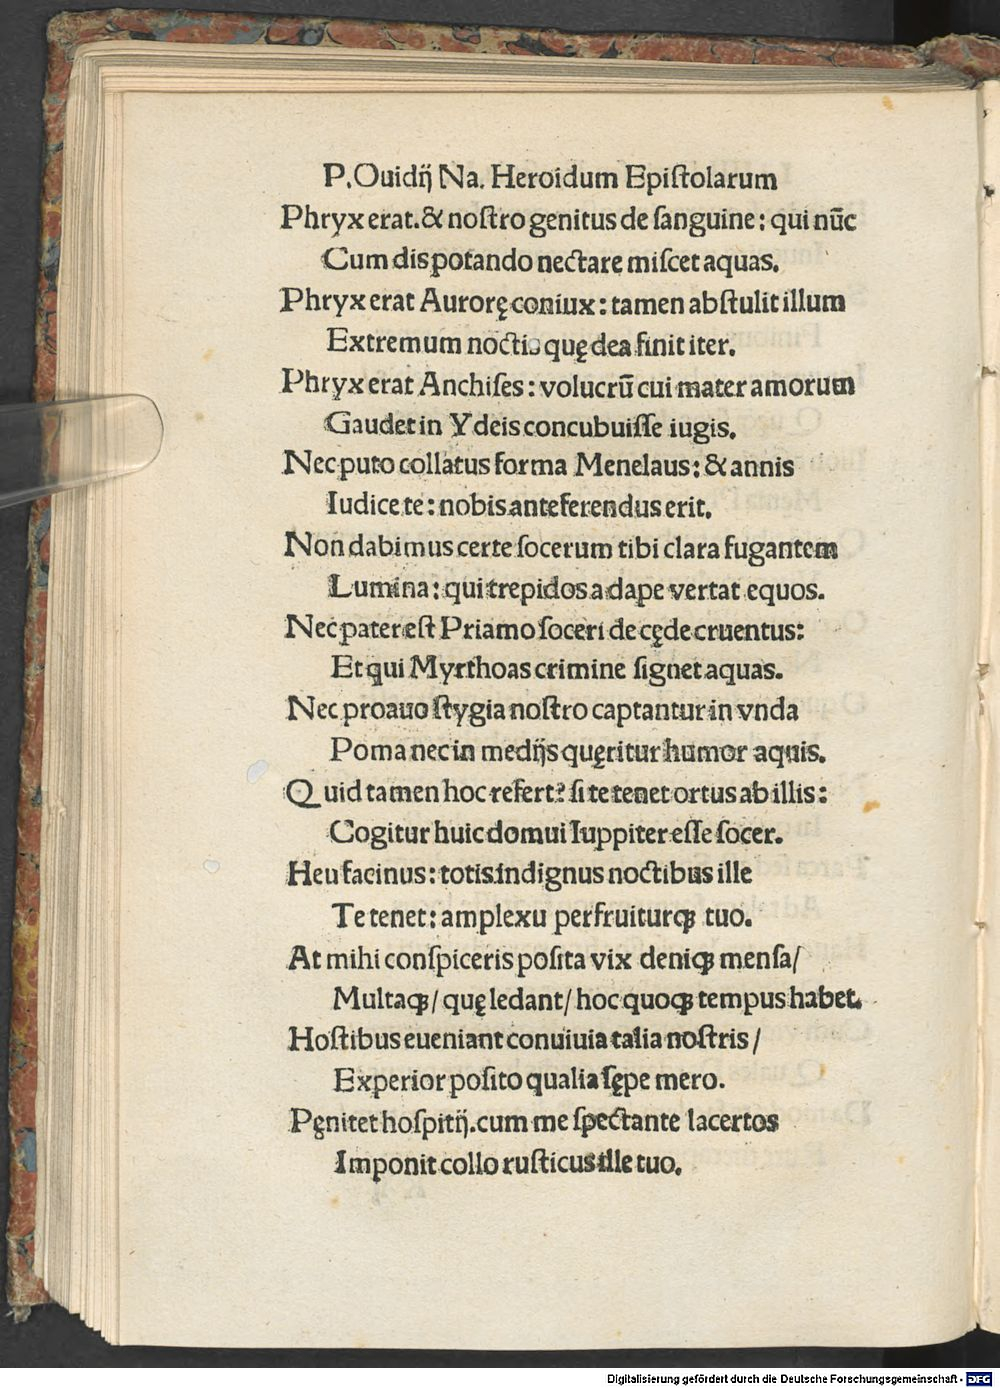 P.Ouidij Na. Heroidum Epiſtolarum
Phryx erat.& noſtro genitus de ſanguine: qui nūc
Cum dis potando nectare miſcet aquas.
Phryx erat Aurorę coniux: tamen abſtulit illum
Extremum noctis quę dea finit iter.
Phryx erat Anchiſes: volucrū cui mater amorum
Gaudet in Ydeis concubuiſſe iugis.
Nec puto collatus forma Menelaus: & annis
Iudice te: nobis anteferendus erit.
Non dabimus certe ſocerum tibi clara fugantem
Lumina: qui trepidos a dape vertat equos.
Nec pater eſt Priamo ſoceri de cęde cruentus:
Et qui Myrthoas crimine ſignet aquas.
Nec proauo ſtygia noſtro captantur in vnda
Poma nec in medijs quęritur humor aquis.
Quid tamen hoc refert? ſi te tenet ortus ab illis:
Cogitur huic domui Iuppiter eſſe ſocer.
Heu facinus: totis indignus noctibus ille
Te tenet: amplexu perfruiturqꝫ tuo.
At mihi conſpiceris poſita vix deniqꝫ menſa/
Multaqꝫ/ quę ledant/ hoc quoqꝫ tempus habet.
Hoſtibus eueniant conuiuia talia noſtris/
Experior poſito qualia ſępe mero.
Pęnitet hoſpitij.cum me ſpectante lacertos
Imponit collo ruſticus ille tuo.
Digitalisierung gefördert durch die Deutsche Forschungsgemeinschaft - DFG